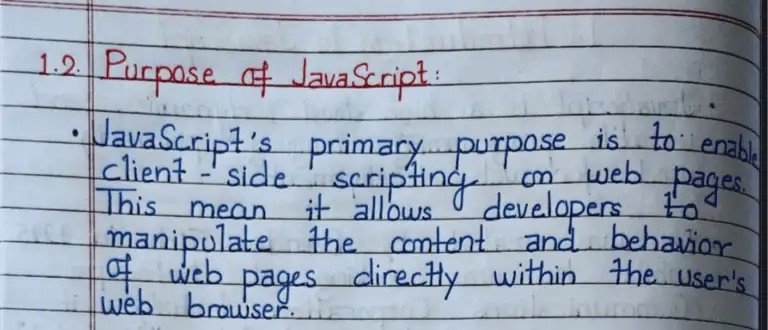 1.2. Purpose of JavaScript:
• JavaScript's primary purpose is to enable
client-side scripting on web pages.
This mean it allows developers to
manipulate the content and behavior
of web pages directly within the user's
web browser.